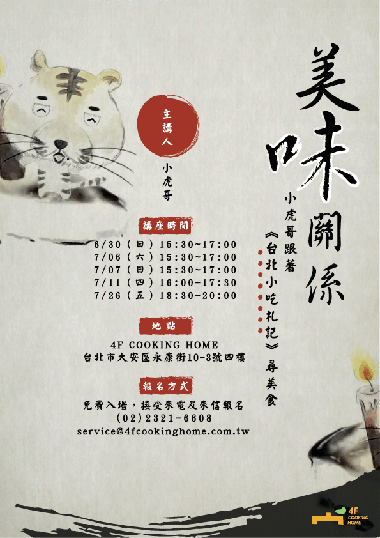 美味關係
小虎哥跟著
《台北小吃札記》尋美食
主講人
小虎哥
講座時間
6/30（日）15:30-17:00
7/06（六）15:30-17:00
7/07（日）15:30-17:00
7/11（四）16:00-17:30
7/26（五）18:30-20:00
地點
4F COOKING HOME
台北市大安區永康街10-3號四樓
報名方式
免費入場，接受來電及來信報名
(02)2321-6608
service@4fcookinghome.com.tw
4F
COOKING
HOME